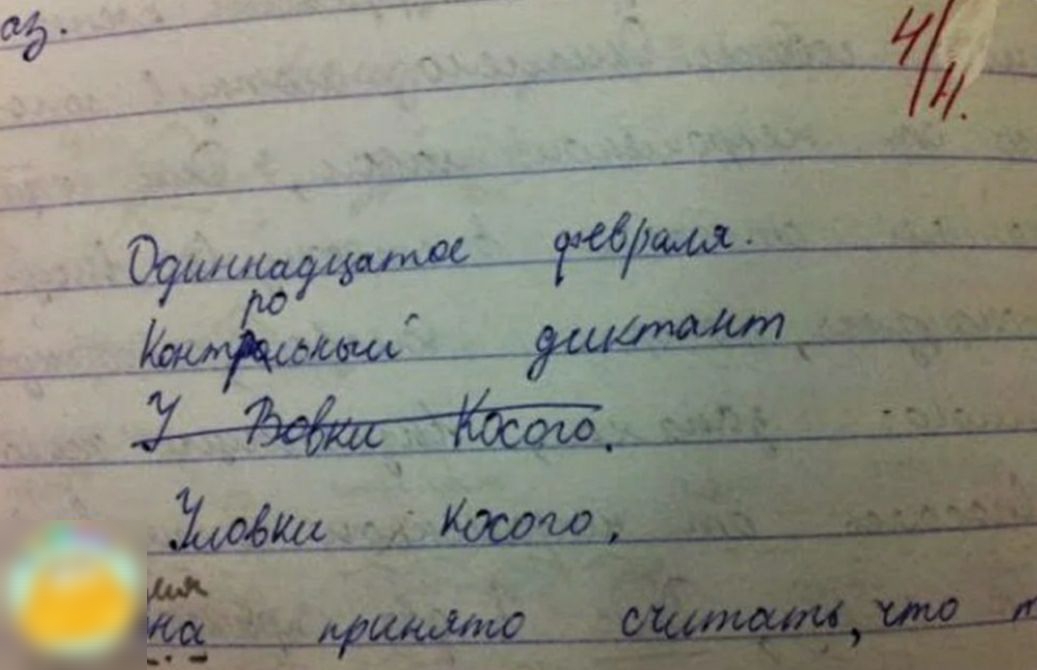 аз.
4/4.
Одиннадцатое февраля.
ро
Контрольный диктант
У Вовки Косого.
Уловки косого.
ия
на принято считать, что